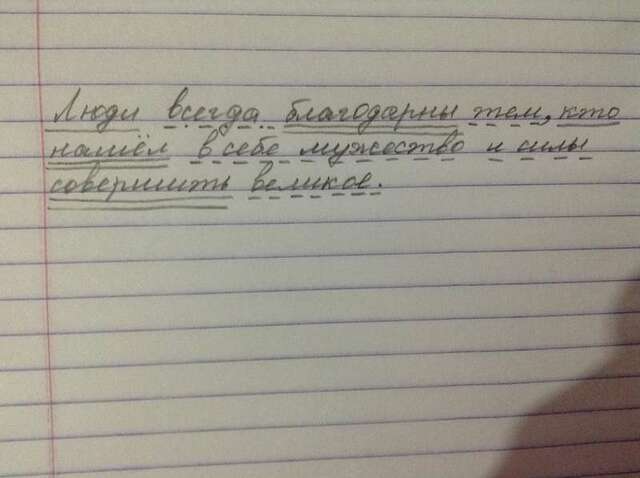 Люди всегда благодарны тем, кто
нашёл в себе мужество и силы
совершить великое.